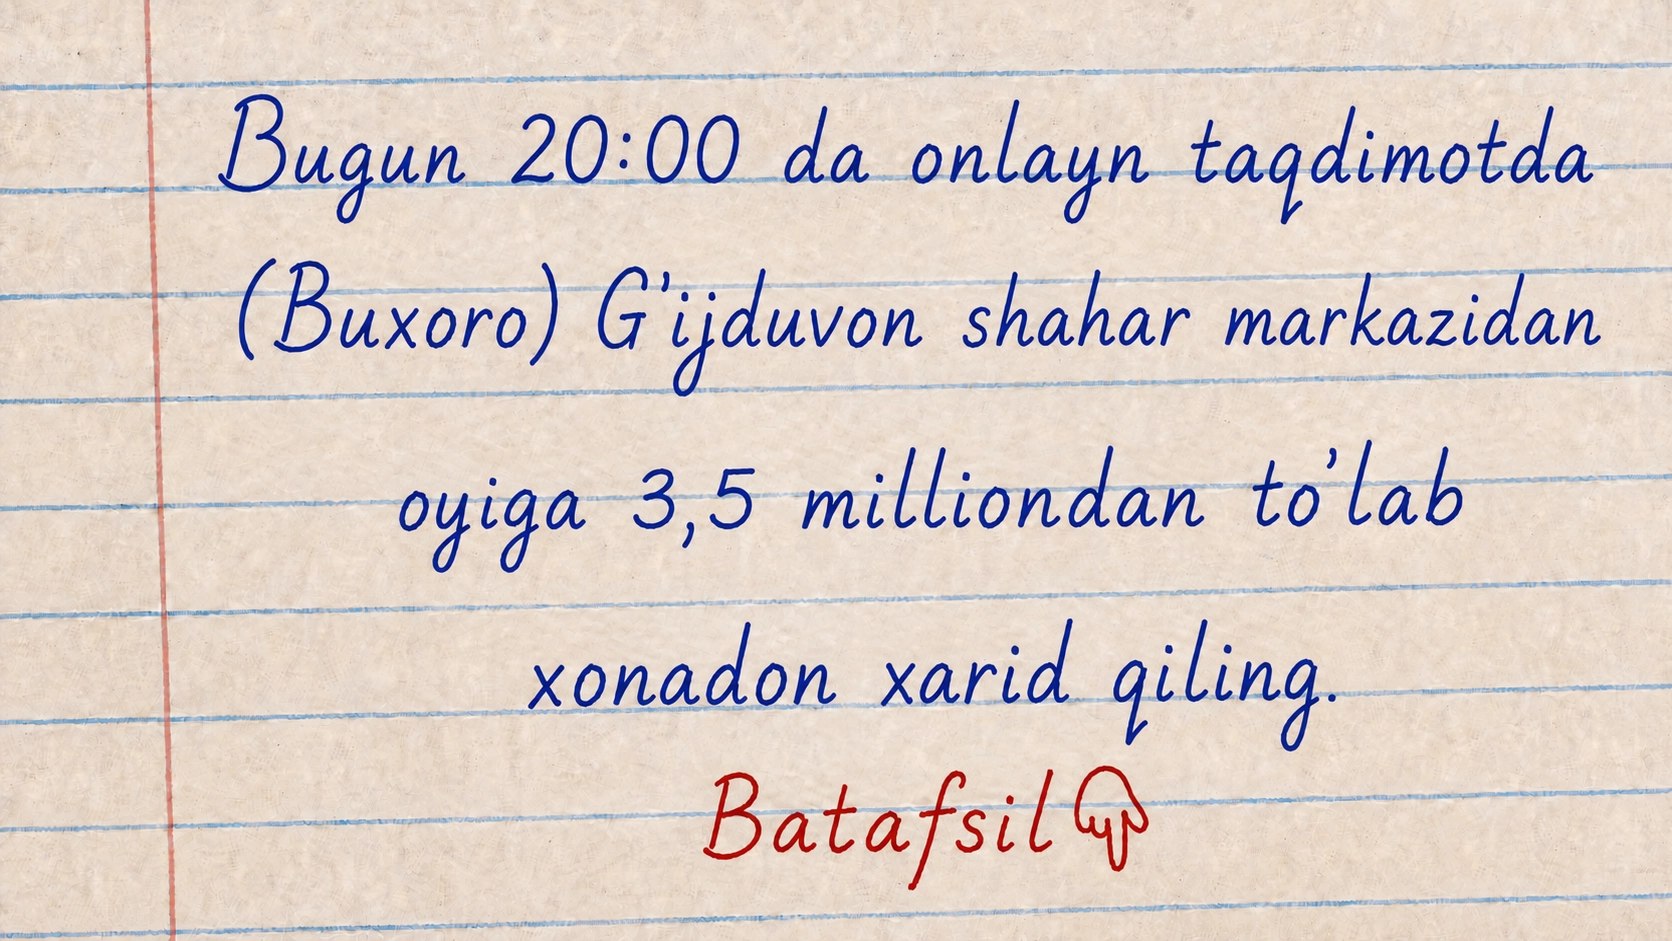 Bugun 20:00 da onlayn taqdimotda
(Buxoro) G'ijduvon shahar markazidan
oyiga 3,5 milliondan to'lab
xonadon xarid qiling.
Batafsil